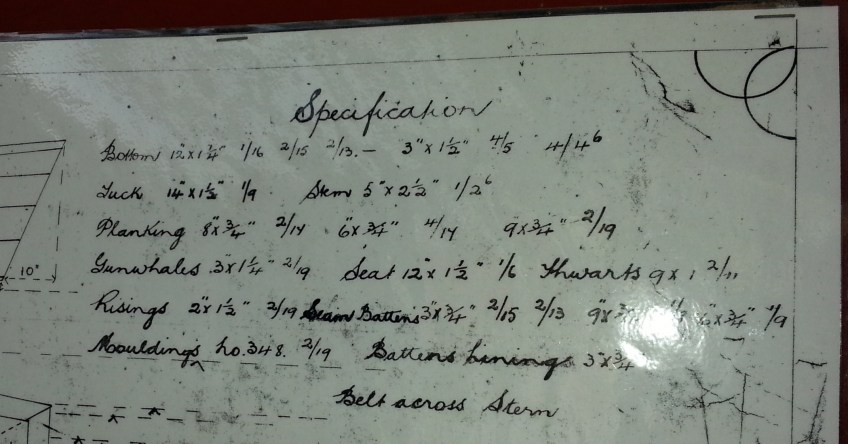 Specification
Bottom 12"x1¼" 1/16 2/15 2/13.– 3"x1½" 4/5 4/4⁶
Tuck 14"x1½" 1/9 Stem 5"x2½" 1/2⁶
Planking 8"x¾" 2/14 6"x¾" 4/14 9x¾" 2/19
10"
Gunwhales 3"x1¼" 2/19 Seat 12"x1½" 1/6 Thwarts 9x1 2/11
Risings 2"x1½" 2/19 Seam Battens 3"x¾" 2/15 2/13 ¾" 1/9
Mouldings No.348. 2/19 Battens Linings 3"x¾"
Belt across Stern